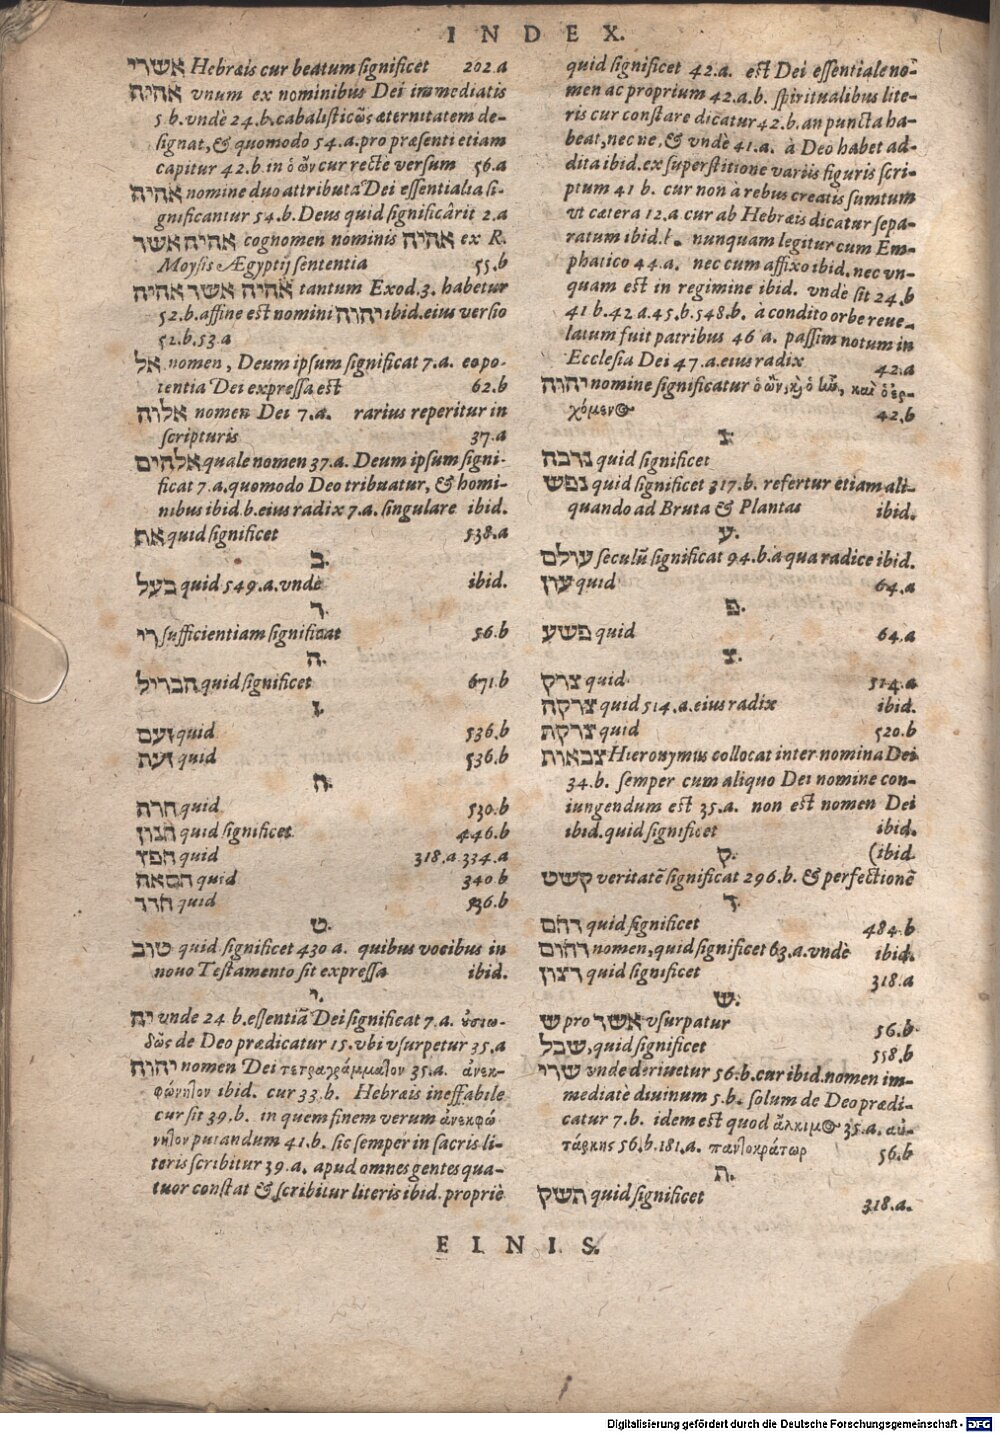 INDEX.
אשרי Hebræis cur beatum significet 202.a
אהיה vnum ex nominibus Dei immediatis
5.b.vndè 24.b.cabalisticῶς æternitatem de-
signat,& quomodo 54.a.pro præsenti etiam
capitur 42.b.in ὁ ὢν cur rectè versum 56.a
אהיה nomine duo attributa Dei essentialia si-
gnificantur 54.b.Deus quid significârit 2.a
אהיה אשר אהיה cognomen nominis אהיה ex R.
Moysis Ægyptij sententia 55.b
אהיה אשר אהיה tantum Exod.3. habetur
52.b.affine est nomini יהוה ibid.eius versio
52.b.53.a
אל nomen, Deum ipsum significat 7.a. eo po-
tentia Dei expressa est 62.b
אלוה nomen Dei 7.a. rarius reperitur in
scripturis 37.a
אלהים quale nomen 37.a. Deum ipsum signi-
ficat 7.a.quomodo Deo tribuatur, & homi-
nibus ibid.b.eius radix 7.a. singulare ibid.
את quid significet 538.a
ב.
בעל quid 549.a.vndè ibid.
ד.
די sufficientiam significat 56.b
ה.
הבדיל quid significet 671.b
ז.
זעם quid 536.b
זעת quid 536.b
ח.
חרה quid 530.b
חנון quid significet 446.b
חפץ quid 318.a.334.a
חטאה quid 340.b
חרד quid 536.b
ט.
טוב quid significet 430 a. quibus vocibus in
nouo Testamento sit expressa ibid.
י.
יה vnde 24 b.essentiã Dei significat 7.a. ὐσιω-
δῶς de Deo prædicatur 15.vbi vsurpetur 35.a
יהוה nomen Dei τετραγράμματον 35.a. ἀνεκ-
φώνητον ibid. cur 33.b. Hebræis ineffabile
cur sit 39.b. in quem finem verum ἀνεκφώ
νητον putandum 41.b. sic semper in sacris li-
teris scribitur 39.a. apud omnes gentes qua-
tuor constat & scribitur literis ibid. propriè
quid significet 42.a. est Dei essentiale no-
men ac proprium 42.a.b. spiritualibus lite-
ris cur constare dicatur 42.b.an puncta ha-
beat, nec ne, & vndè 41.a. à Deo habet ad-
dita ibid.ex superstitione variis figuris scri-
ptum 41 b. cur non à rebus creatis sumtum
vt cætera 12.a cur ab Hebræis dicatur sepa-
ratum ibid. nunquam legitur cum Em-
phatico 44.a. nec cum affixo ibid. nec vn-
quam est in regimine ibid. vndè sit 24.b
41 b.42 a.45.b.548.b. à condito orbe reue-
latum fuit patribus 46 a. passim notum in
Ecclesia Dei 47.a.eius radix 42.a
יהוה nomine significatur ὁ ὢν, καὶ ὁ ἦν, καὶ ὁ ἐρ-
χόμενος 42.b
נ.
נדבה quid significet
נפש quid significet 317.b. refertur etiam ali-
quando ad Bruta & Plantas ibid.
ע.
עולם seculũ significat 94.b.a qua radice ibid.
עון quid 64.a
פ.
פשע quid 64.a
צ.
צדק quid 514.a
צדקה quid 514.a.eius radix ibid.
צדקת quid 520.b
צבאות Hieronymus collocat inter nomina Dei
34.b. semper cum aliquo Dei nomine con-
iungendum est 35.a. non est nomen Dei
ibid.quid significet ibid.
ק. (ibid.
קשט veritatẽ significat 296.b. & perfectionẽ
ר.
רחם quid significet 484.b
רחום nomen, quid significet 63.a.vndè ibid.
רצון quid significet 318.a
ש.
ש pro אשר vsurpatur 56.b
שכל, quid significet 558.b
שדי vnde deriuetur 56.b.cur ibid.nomen im-
mediatè diuinum 5.b. solum de Deo prædi-
catur 7.b. idem est quod ἄλκιμος 35.a. αὐ-
τάρκης 56.b.181.a. παντοκράτωρ 56.b
ת.
חשק quid significet 318.a.
FINIS.
Digitalisierung gefördert durch die Deutsche Forschungsgemeinschaft - DFG